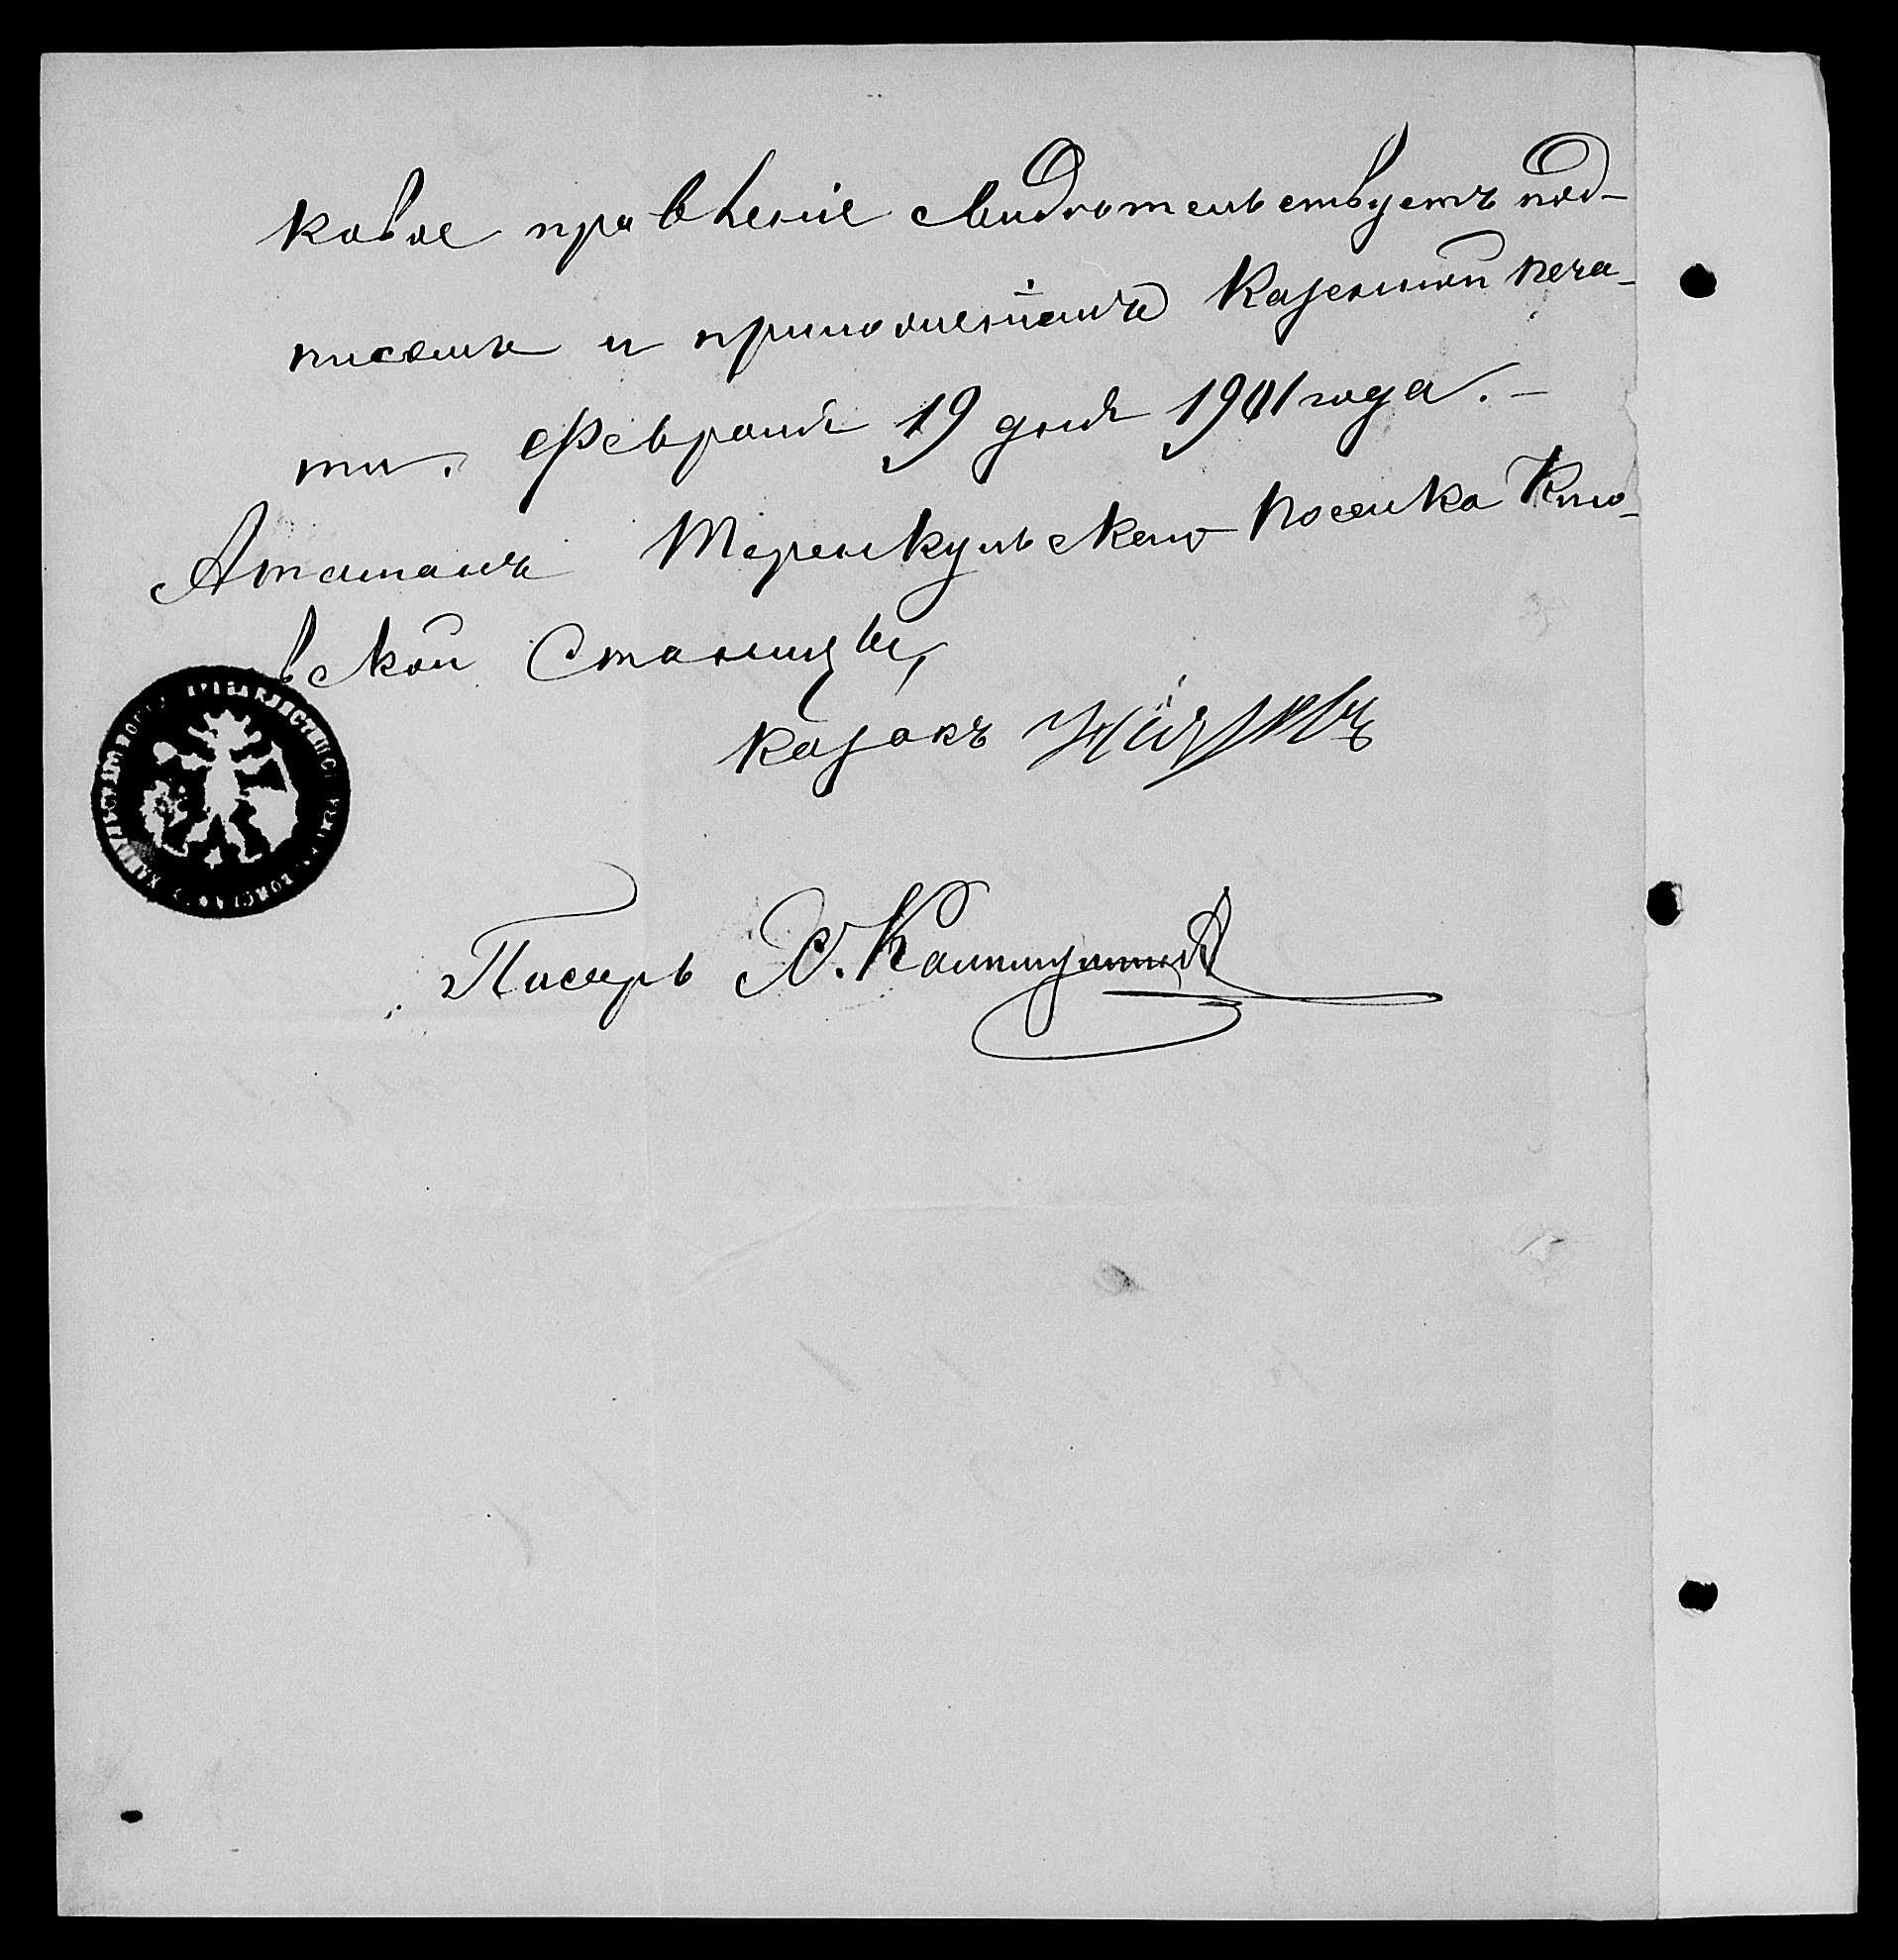 ковое правленіе свидѣтельствуетъ под-
писомъ и приложеніемъ Казенной печа-
ти. Февраля 19 дня 1901 года. -
Атаманъ Теренкульскаго Поселка Кто-
вской Станицы,
казакъ
Писарь